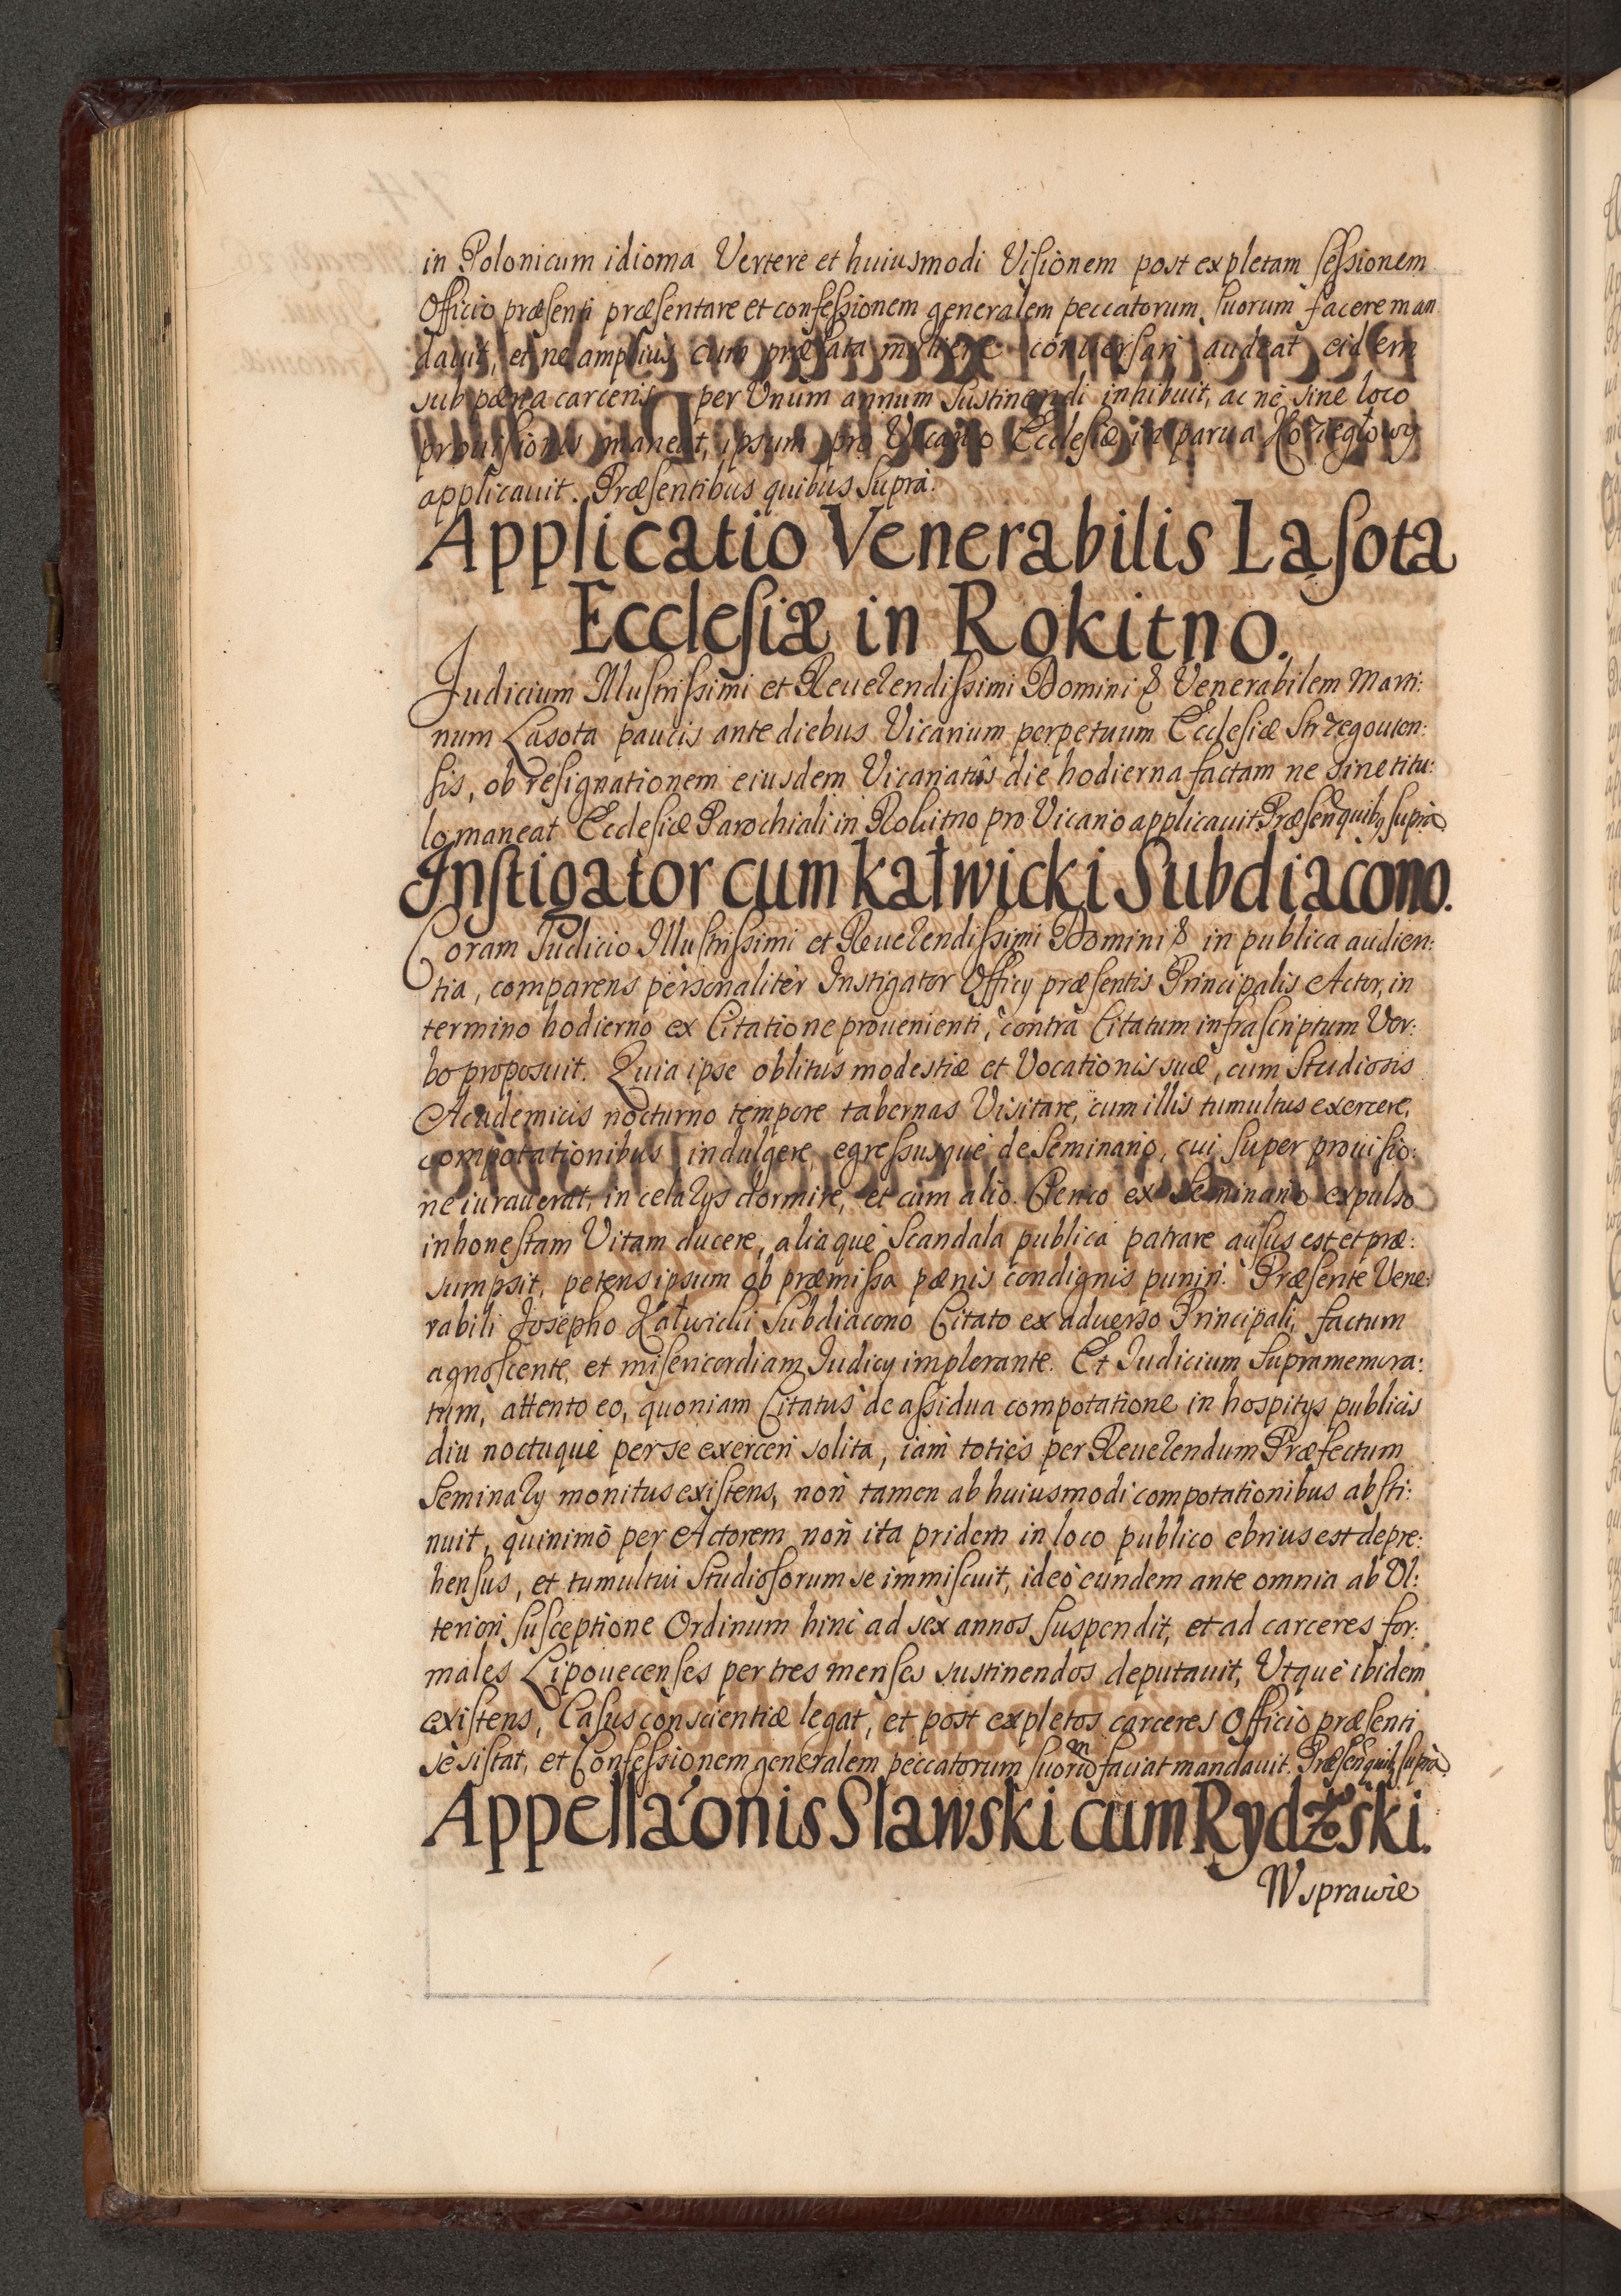 in Polonicum idioma Vertere et huiusmodi Visionem post expletam seſsionem
Officio præſenti præſentare et confeſsionem generalem peccatorum suorum facere man
dauit, et ne amplius cum præfata muliere conuersari audeat eidem
sub pæna carceris per Vnum annum sustinendi inhibuit, ac nè sine loco
prouiſionis maneat, ipsum pro Vicario Eccleſiæ in parua Koziegłowy
applicauit. Præſentibus quibus suprà.
Applicatio Venerabilis Laſota
Eccleſiæ in Rokitno.
Judicium Illuſtriſsimi et Reuerendiſsimi Domini & Venerabilem Marti:
num Lasota paucis ante diebus Vicarium perpetuum Eccleſiæ Strzegouien:
ſis, ob reſignationem eiusdem Vicariatûs die hodierna factam ne sine titu:
lo maneat Eccleſiæ Parochiali in Rokitno pro Vicario applicauit. Præſen quibꝫ suprà.
Inſtigator cum Kałwicki Subdiacono.
Coram Judicio Illuſtriſsimi et Reuerendiſsimi Domini & in publica audien:
tia, comparens personalitèr Instigator Officÿ præſentis Principalis Actor, in
termino hodierno ex Citatione prouenienti, contrà Citatum infraſcriptum Ver:
bo proposuit. Quia ipse oblitus modestiæ et Vocationis suæ, cum Studiosis
Academicis nocturno tempore tabernas Visitare, cum illis tumultus exercere,
compotationibus indulgere, egreſsusquè de Seminario, cui super prouiſio:
ne iurauerat, in celarÿs dormire, et cum alio Clerico ex Seminario expulso
inhoneſtam Vitam ducere, aliaquè Scandala publica patrare ausus est et præ:
sumpsit, petens ipsum ob præmiſsa pænis condignis puniri. Præſente Vene:
rabili Josepho Kałwicki Subdiacono Citato ex aduerso Principali, factum
agnoſcente, et misericordiam Judicÿ implorante. Et Judicium Supramemora:
tum, attento eo, quoniam Citatus de aſsidua compotatione in hospitÿs publicis
diu noctuquè per se exerceri solita, iam toties per Reuerendum Præfectum
Seminarÿ monitus exiſtens, non tamen ab huiusmodi compotationibus abſti:
nuit, quinimò per Actorem non ita pridem in loco publico ebrius est depre:
henſus, et tumultui Studioſorum se immiſcuit, ideò eundem ante omnia ab Vl:
teriori suſceptione Ordinum hinc ad sex annos suspendit, et ad carceres for:
males Lipouecenſes per tres menſes sustinendos deputauit, Vtquè ibidem
exiſtens, Caſus conscientiæ legat, et post expletos carceres Officio præſenti
se siſtat, et Confeſsionem generalem peccatorum suorum faciat mandauit. Præſen quibꝫ suprà.
Appella'onis Slawski cum Rydzski.
W sprawie